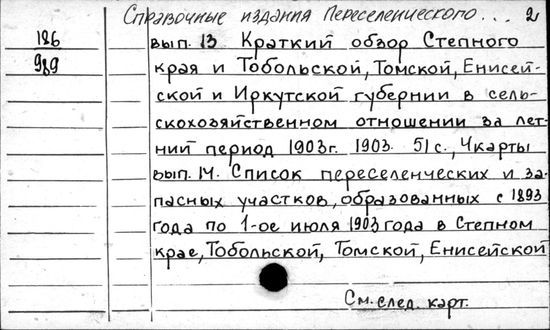 Справочные издания Переселенческого... 2
126
989
вып. 13 Краткий обзор Степного
края и Тобольской, Томской, Енисей-
ской и Иркутской губернии в сель-
скохозяйственном отношении за лет-
ний период 1903г. 1903. 51 с., 4 карты
вып. 14. Список переселенческих и за-
пасных участков, образованных с 1893
года по 1-ое июля 1903 года в Степном
крае, Тобольской, Томской, Енисейской
См. след. карт.